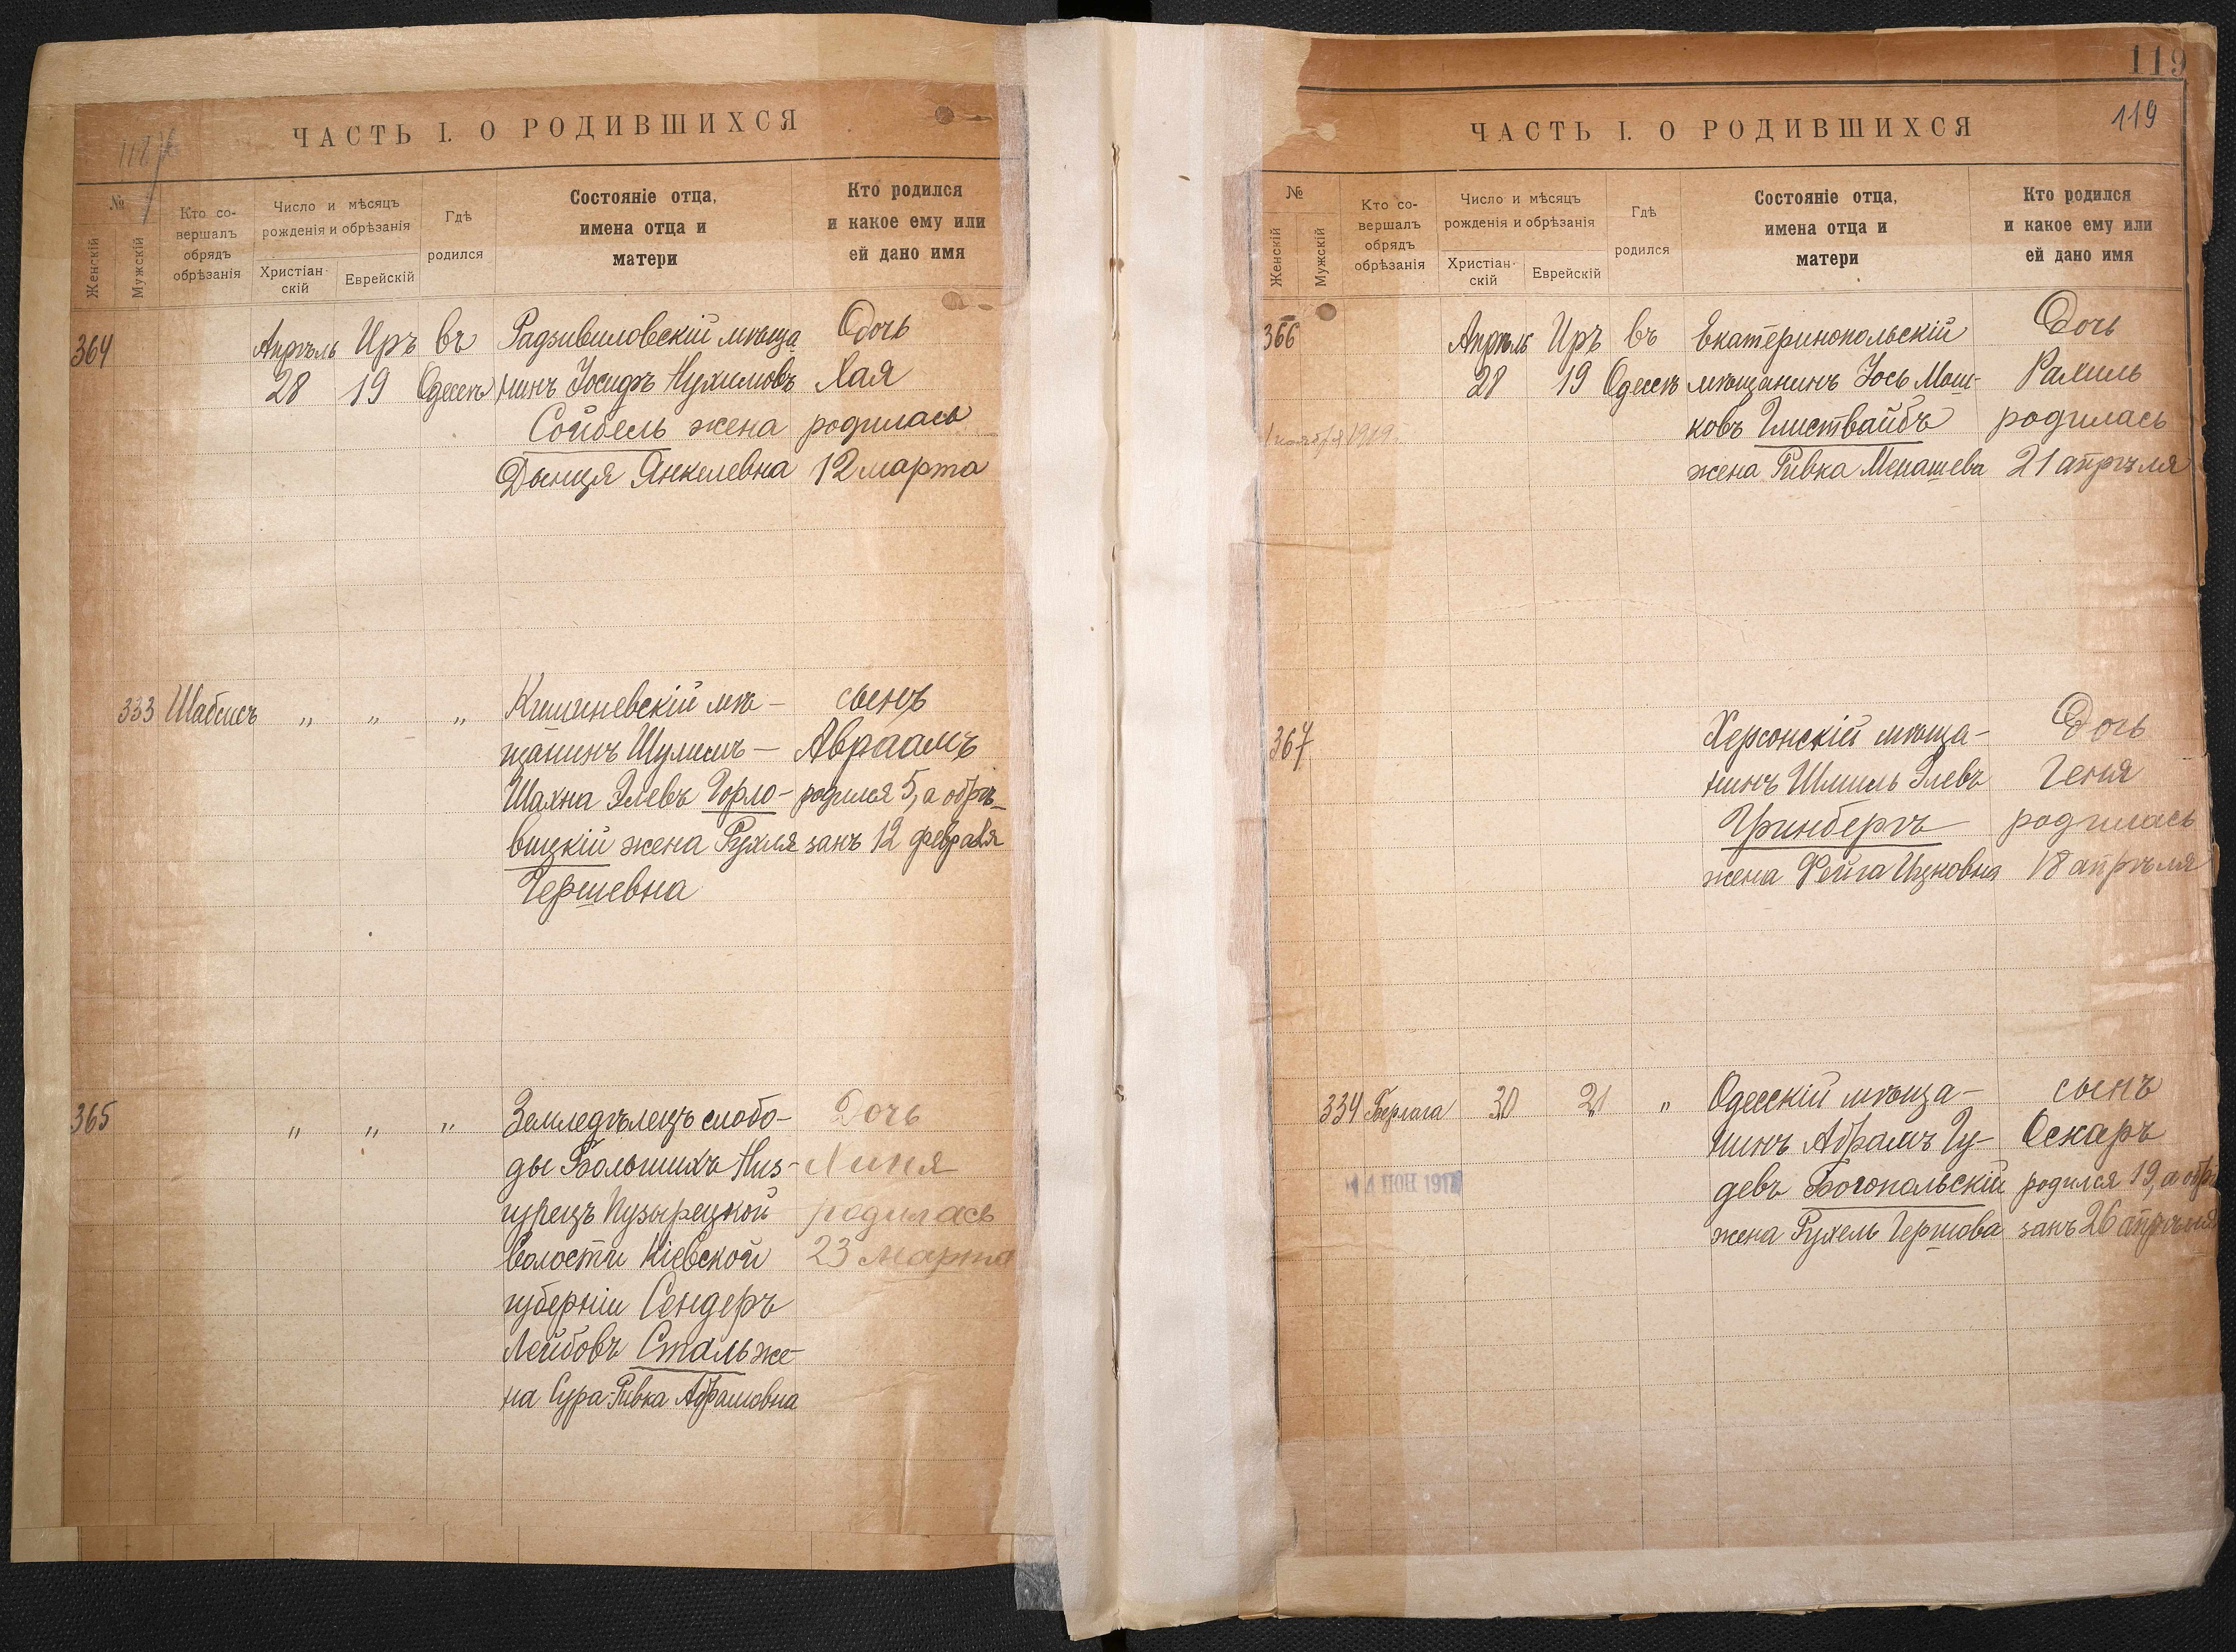 ЧАСТЬ I. О РОДИВШИХСЯ
№
Женскій
Мужскій
Кто со-
вершалъ
обрядъ
обрѣзанія
Число и мѣсяцъ
рожденія и обрѣзанія
Христіан-
скій
Еврейскій
Гдѣ
родился
Состояніе отца,
имена отца и
матери
Кто родился
и какое ему или
ей дано имя
364
Апрѣль
28
Иръ
19
въ
Одессѣ
Радзивиловскій мѣща
нинъ Іосифъ Нухимовъ
Сойбель жена
Двойця Янкелевна
Дочь
Хая
родилась
12 марта
333 Шабсисъ „ „ „
Кишиневскій мѣ-
щанинъ Шулимъ-
Шахна Элевъ Горло-
вицкій жена Рухля
Гершевна
сынъ
Авраамъ
родился 5, а обрѣ-
занъ 12 февраля
365 „ „ „
Земледѣлецъ слобо-
ды Большихъ Низ-
гурецъ Пузырецкой
волости Кіевской
губерніи Сендеръ
Лейбовъ Сталь же-
на Сура-Ривка Абрамовна
Дочь
родилась
23 марта
119
119
ЧАСТЬ I. О РОДИВШИХСЯ
№
Женскій
Мужскій
Кто со-
вершалъ
обрядъ
обрѣзанія
Число и мѣсяцъ
рожденія и обрѣзанія
Христіан-
скій
Еврейскій
Гдѣ
родился
Состояніе отца,
имена отца и
матери
Кто родился
и какое ему или
ей дано имя
366
1 ноября 1919
Апрѣль
28
Иръ
19
въ
Одессѣ
Екатеринопольскій
мѣщанинъ Іось Мош-
ковъ Глиствайбъ
жена Ривка Менашева
Дочь
Рахиль
родилась
21 апрѣля
367
Херсонскій мѣща-
нинъ Шмиль Элевъ
Гринбергъ
жена Фейга Ицковна
Дочь
Геня
родилась
18 апрѣля
334 Берлага 30 21 „
Одесскій мѣща-
нинъ Абрамъ Гу-
девъ Богопольскій
жена Рухель Гершова
сынъ
Оскаръ
родился 19, а обрѣ
занъ 26 апрѣля